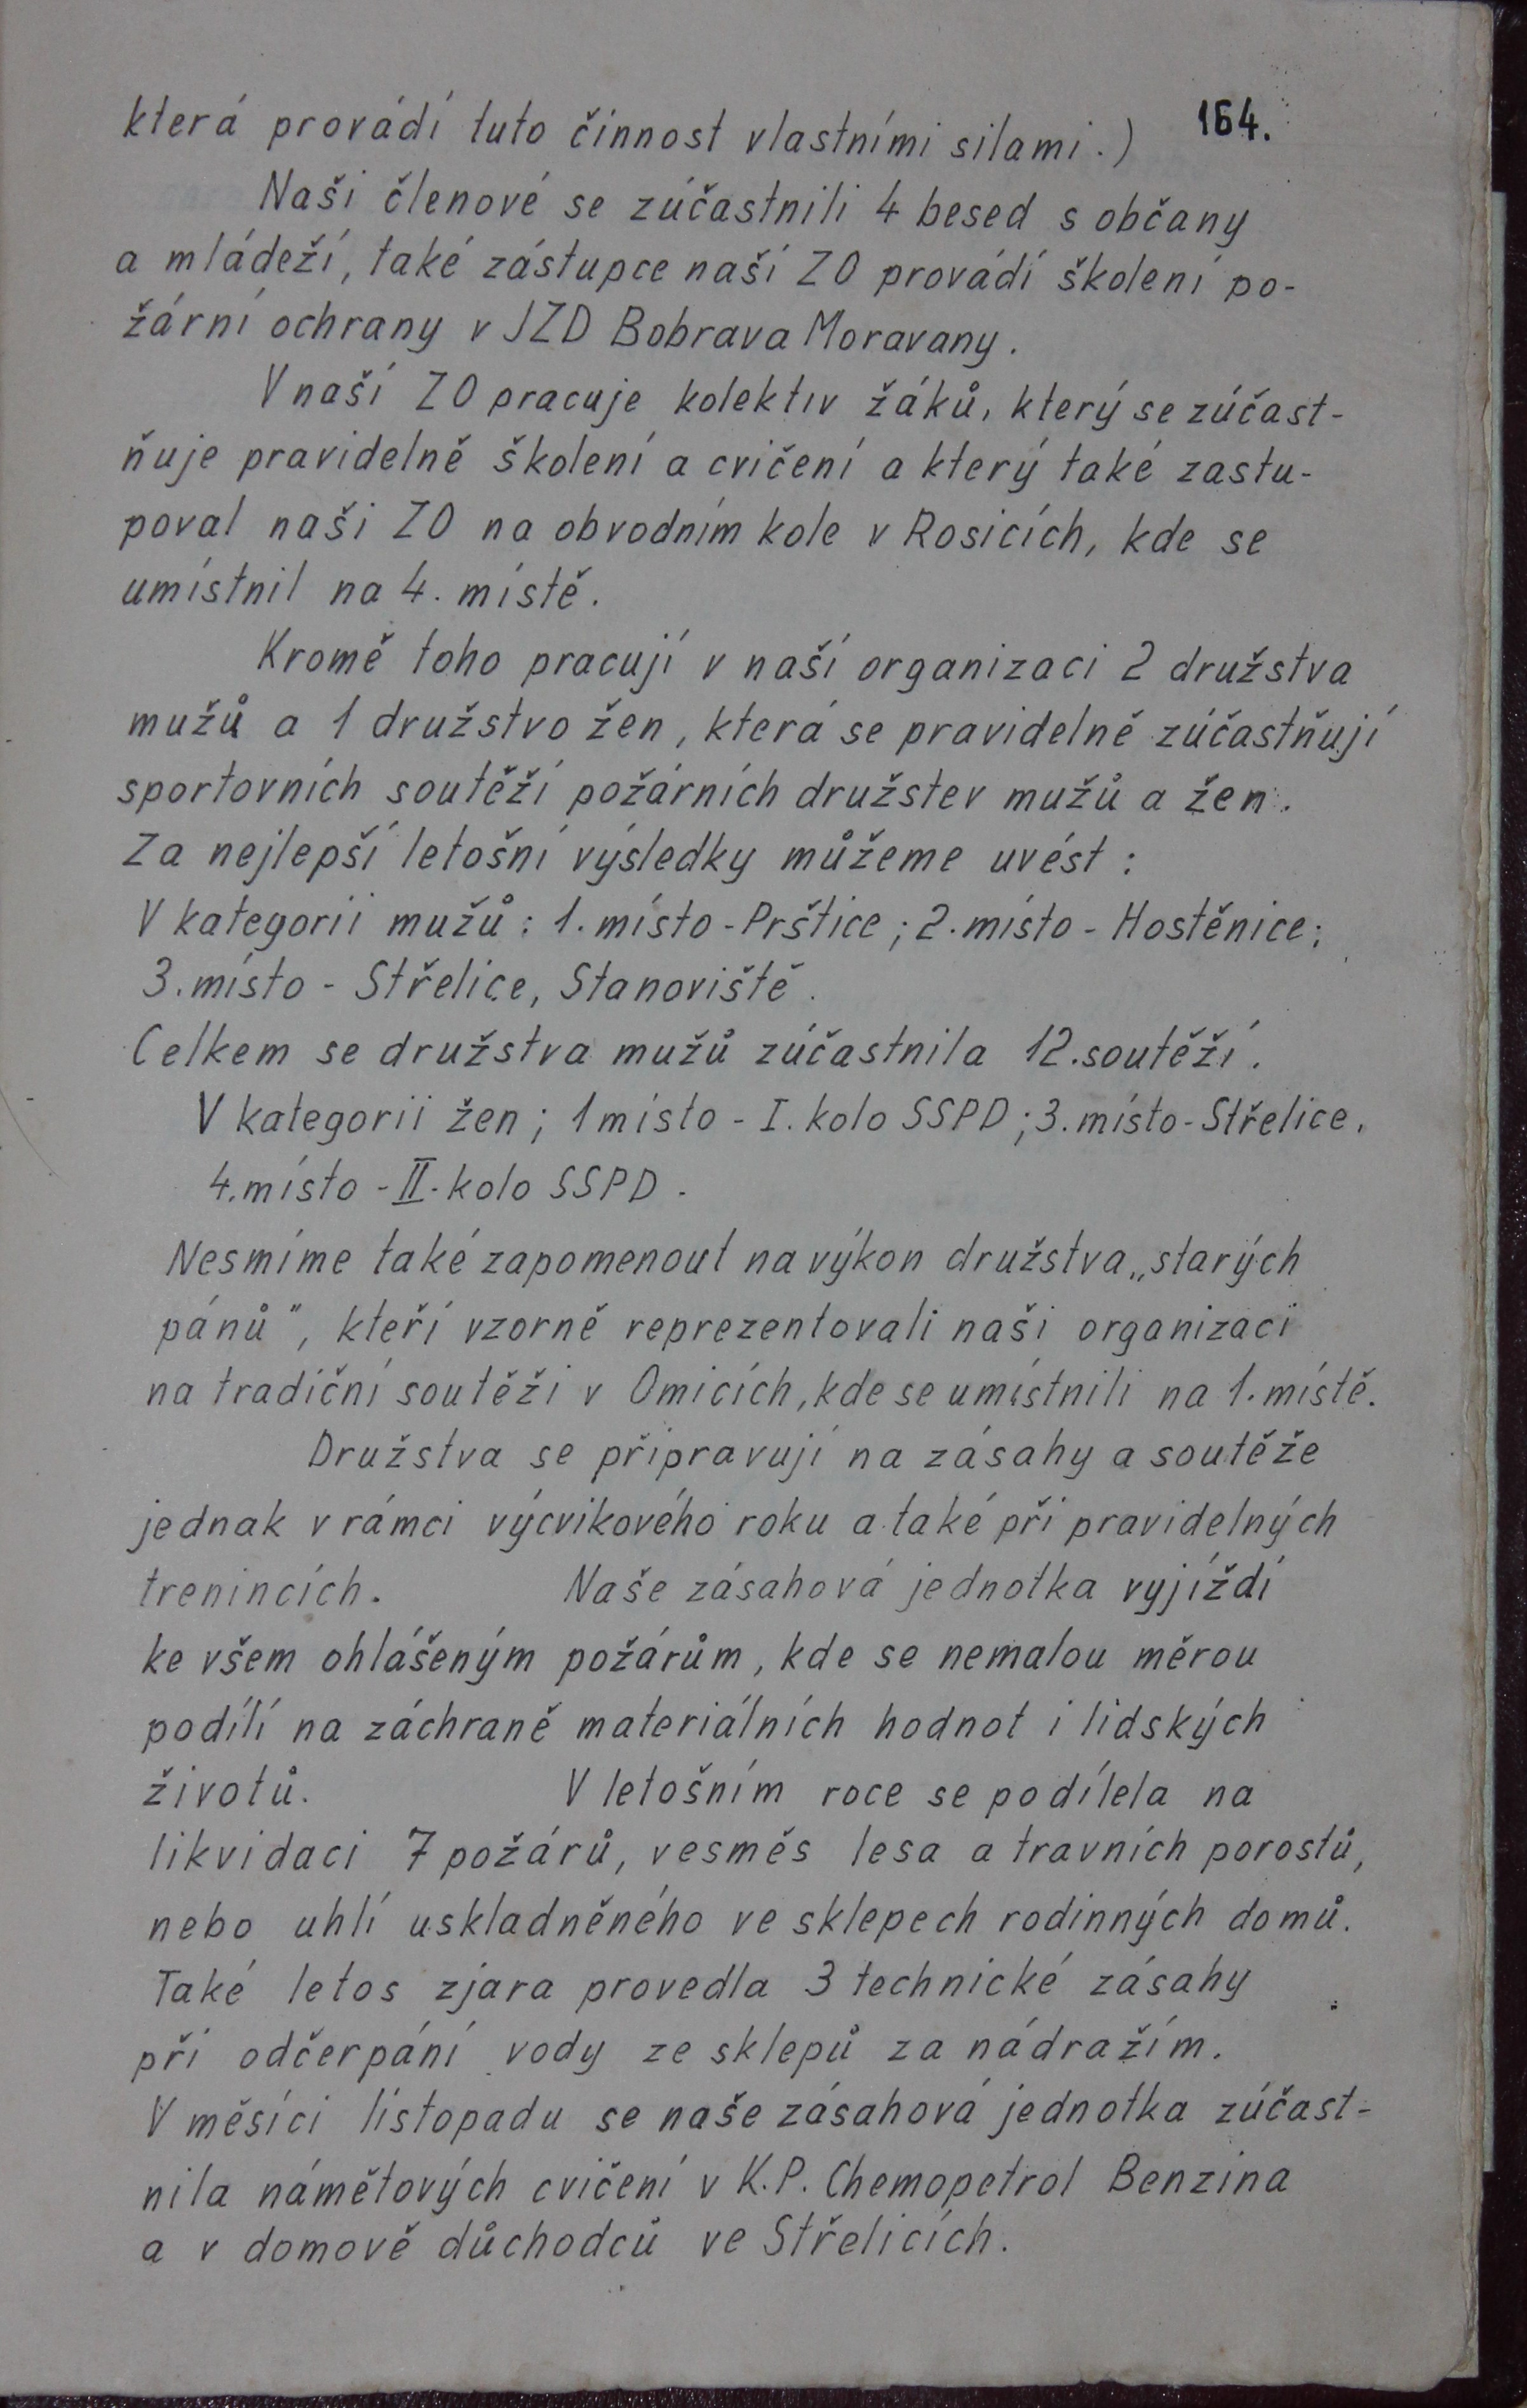 164.
která provádí tuto činnost vlastními silami.)
Naši členové se zúčastnili 4 besed s občany
a mládeží, také zástupce naší ZO provádí školení po-
žární ochrany v JZD Bobrava Moravany.
V naší ZO pracuje kolektiv žáků, který se zúčast-
ňuje pravidelně školení a cvičení a který také zastu-
poval naši ZO na obvodním kole v Rosicích, kde se
umístnil na 4. místě.
Kromě toho pracují v naší organizaci 2 družstva
mužů a 1 družstvo žen, která se pravidelně zúčastňují
sportovních soutěží požárních družstev mužů a žen.
Za nejlepší letošní výsledky můžeme uvést:
V kategorii mužů: 1. místo - Prštice; 2. místo - Hostěnice;
3. místo - Střelice, Stanoviště.
Celkem se družstva mužů zúčastnila 12. soutěží.
V kategorii žen; 1 místo - I. kolo SSPD; 3. místo - Střelice,
4. místo - II. kolo SSPD.
Nesmíme také zapomenout na výkon družstva „starých
pánů", kteří vzorně reprezentovali naši organizaci
na tradiční soutěži v Omicích, kde se umístnili na 1. místě.
Družstva se připravují na zásahy a soutěže
jednak v rámci výcvikového roku a také při pravidelných
trenincích. Naše zásahová jednotka vyjíždí
ke všem ohlášeným požárům, kde se nemalou měrou
podílí na záchraně materiálních hodnot i lidských
životů. V letošním roce se podílela na
likvidaci 7 požárů, vesměs lesa a travních porostů,
nebo uhlí uskladněného ve sklepech rodinných domů.
Také letos zjara provedla 3 technické zásahy
při odčerpání vody ze sklepů za nádražím.
V měsíci listopadu se naše zásahová jednotka zúčast-
nila námětových cvičení v K.P. Chemopetrol Benzina
a v domově důchodců ve Střelicích.